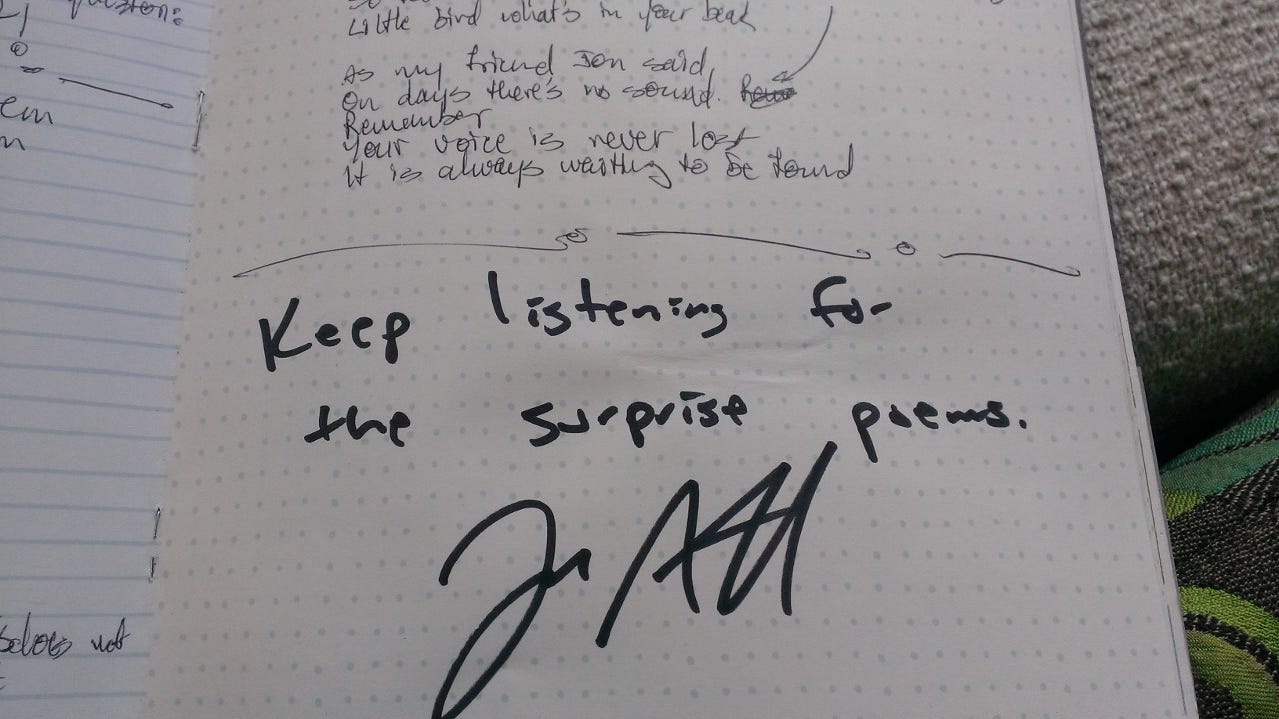 question:
em
n
Little bird what's in your beak
As my friend Jon said,
On days there's no sound.
Remember
Your voice is never lost
It is always waiting to be found
Keep listening for
the surprise poems.
not